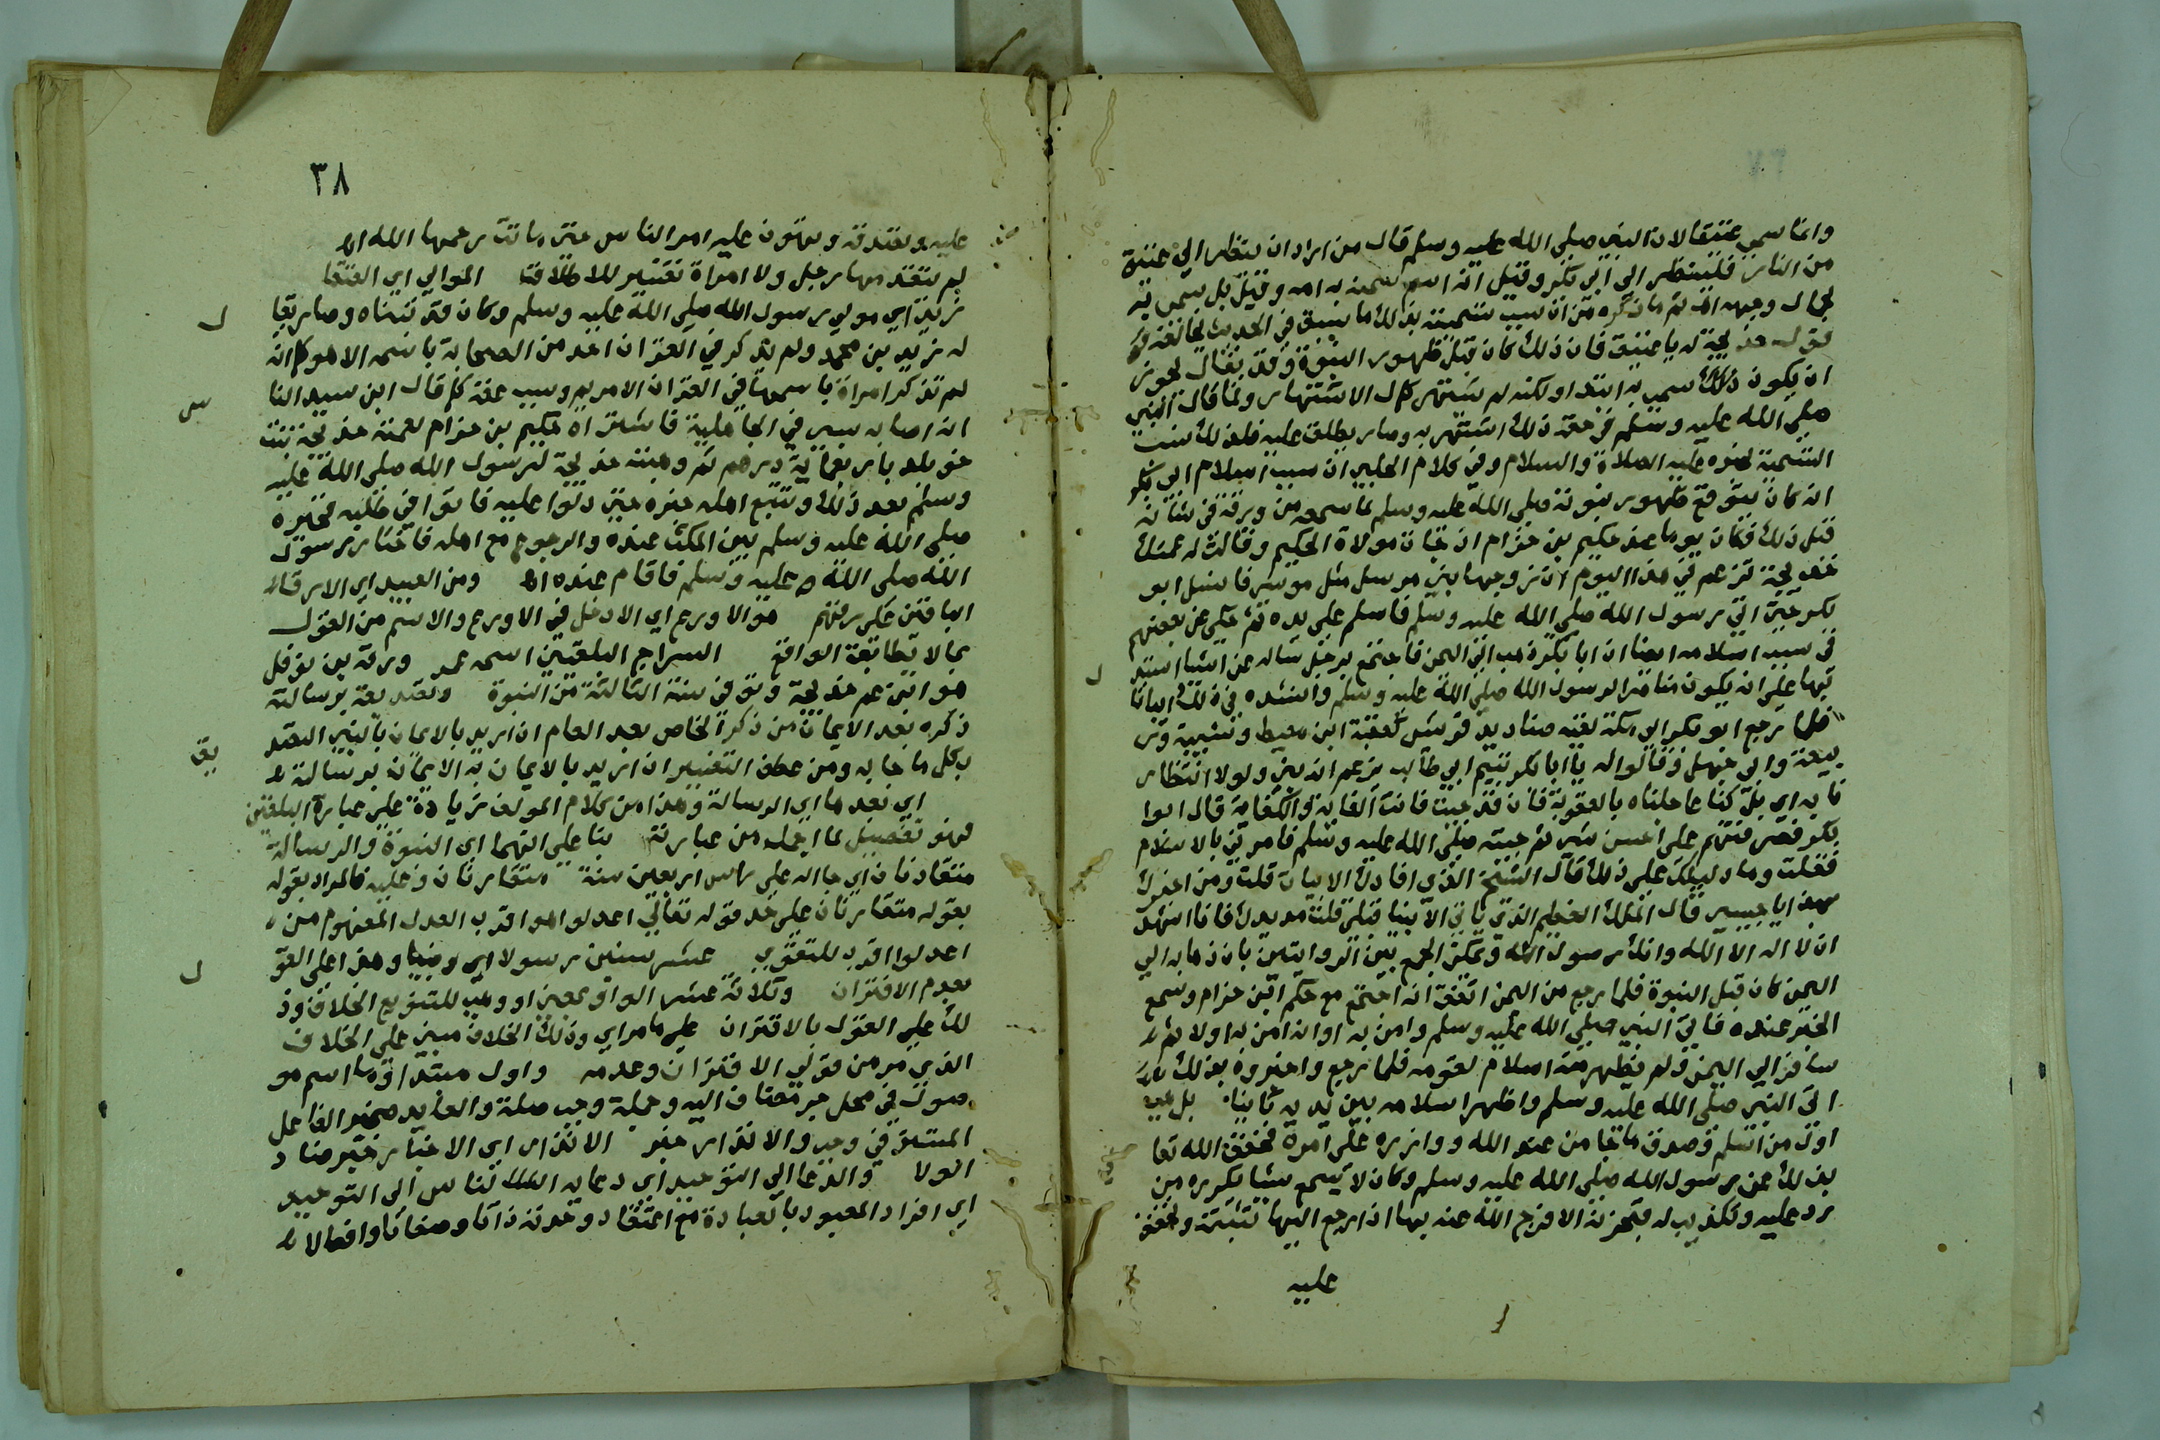 وانما سمي عتيقا لان النبي صلى الله عليه وسلم قال من اراد ان ينظر الي عتيق
من النار فلينظر الي ابي بكر وقيل انه اسم سمته به امه وقيل بل سمي به
لجمال وجهه اه ثم ما ذكره من ان سبب تسميته بذلك ما سبق في الحديث يخالفه
قول خديجة له يا عتيق فان ذلك كان قبل ظهور النبوة وقد يقال يجوز
ان يكون ذلك سمي به ابتدا ولكنه لم يشتهر كل الاشتهار ولما قال النبي
صلي الله عليه وسلم في حقه ذلك اشتهر به وصار يطلق عليه فلذلك نسب
التسمية لخبره عليه الصلاة والسلام وفي كلام الحلبي ان سبب اسلام ابي بكر
انه كان يتوقع ظهور نبوته صلي الله عليه وسلم لما سمعه من ورقة في شانه
قبل ذلك فكان يوما عند حكيم بن حزام اذ جات مولاة لحكيم وقالت له عمتك
خديجة تزعم في هذا اليوم ان زوجها نبي مرسل مثل موسي فانسل ابو
بكر حتي اتي رسول الله صلي الله عليه وسلم فاسلم علي يده ثم حكي عن بعضهم
في سبب اسلامه ايضا ان ابا بكر ذهب الي اليمن فاجتمع برجل ساله عن اشيا استدل
بها علي ان يكون مناصرا لرسول الله صلي الله عليه وسلم وانشده في ذلك ابياتا
فلما رجع ابو بكر الي مكة لقيه صناديد قريش كعقبة ابن معيط وشيبة وابن
ربيعة وابي جهل وقالوا له يا ابا بكر يتيم ابي طالب يزعم انه نبي ولولا انتظار
نا به اي بك كنا عاجلناه بالعقوبة فاذ قد جيت فانت الغاية والكفاية قال ابوا
بكر فصرفتهم علي احسن شي ثم جيته صلي الله عليه وسلم فامرني بالاسلام
فقلت وما دليلك علي ذلك قال الشيخ الذي افادك الابيات قلت ومن اخبرك
بهذا يا حبيبي قال الملك العظيم الذي ياتي الانبيا قبلي قلت مد يدك فانا اشهد
ان لا اله الا الله وانك رسول الله ويمكن الجمع بين الروايتين بان ذهابه الي
اليمن كان قبل النبوة فلما رجع من اليمن اتفق انه اجتمع مع حكيم ابن حزام وسمع
الخبر عنده فاتي النبي صلي الله عليه وسلم وامن به او انه امن به اولا ثم
سافر الي اليمن ولم يظهر منه اسلام لقومه فلما رجع واخبروه بذلك
الي النبي صلي الله عليه وسلم واظهر اسلامه بين يديه ثانيا بل هي
اول من اسلم وصدق ما جا من عند الله ووازره علي امره فخفف الله تعا
بذلك عن رسول الله صلي الله عليه وسلم وكان لا يسمع شيا يكرهه من
رد عليه وتكذيب له فيحزنه الا فرج الله عنه بها اذا رجع اليها تثبته وتخفف
عليه
٣٨
عليه وتصدقه وتهون عليه امر الناس حتي ماتت رحمها الله اه
لم يتقدمها رجل ولا امراة تفسير للاطلاقة الموالي اي العتقا
زيد اي مولي رسول الله صلي الله عليه وسلم وكان قد تبناه وصار يقا
ل
له زيد بن محمد ولم يذكر في القران احد من الصحابة باسمه الا هو كما انه
لم تذكر امراة باسمها في القران الا مريم وسبب عتقه كما قال ابن سيد النا
س
انه اصابه سبي في الجاهلية فاشتراه حكيم بن حزام لعمته خديجة بنت
خويلد باربعماية درهم ثم وهبته خديجة لرسول الله صلي الله عليه
وسلم بعد ذلك وتتبع اهله خبره حتي دلوا عليه فاتوا في طلبه فخيره
صلي الله عليه وسلم بين المكث عنده والرجوع مع اهله فاختار رسول
الله صلي الله عليه وسلم فاقام عنده اه ومن العبيد اي الارقا
الباقين علي رقهم هو الاورع اي الادخل في الاورع والاسلم من القول
بما لا تطابقه الواقع السراج البلقيني اسمه عمر ورقة بن نوفل
هو ابن عم خديجة وتوفي سنة الثالثة من النبوة وتصديقه برسالته
ذكره بعد الايمان من ذكر الخاص بعد العام ان اريد بالايمان بالنبي التصد
يق
بكل ما جا به ومن عطف التفسير ان اريد بالايمان به الايمان برسالته
اي بعدها اي الرسالة وهذا من كلام المولف زيادة علي عبارة البلقيني
فهو تفصيل لما اجمله من عبارته بنا علي انهما اي النبوة والرسالة
متقارنان اي جا اله علي راس اربعين سنة متقارنان وعليه فالمراد بقوله
بقوله متقارنان علي حد قوله تعالي اعدلوا هو اقرب العدل المفهوم من
اعدلوا اقرب للتقوي عشر سنين رسولا اي ونبيا وهذا علي القو
ل
بعدم الاقتران وثلاثة عشر الواو بمعني او وهي لتنويع الخلاف وذ
لك علي القول بالاقتران علي ما مر اي وذلك الخلاف مبني علي الخلاف
الذي مر من قولي الاقتران وعدمه واول مبتدا وما اسم مو
صول في محل جر مضاف اليه وجملة وجب صلة والعايد ضمير الفاعل
المستتر في وجب والانذار خبر الانذار اي الاخبار خبر مضاد
الولا والدعا الي التوحيد اي دعايه للناس الي التوحيد
اي افراد المعبود بالعبادة مع اعتقاد وحدته ذاتا وصفاتا وافعالا